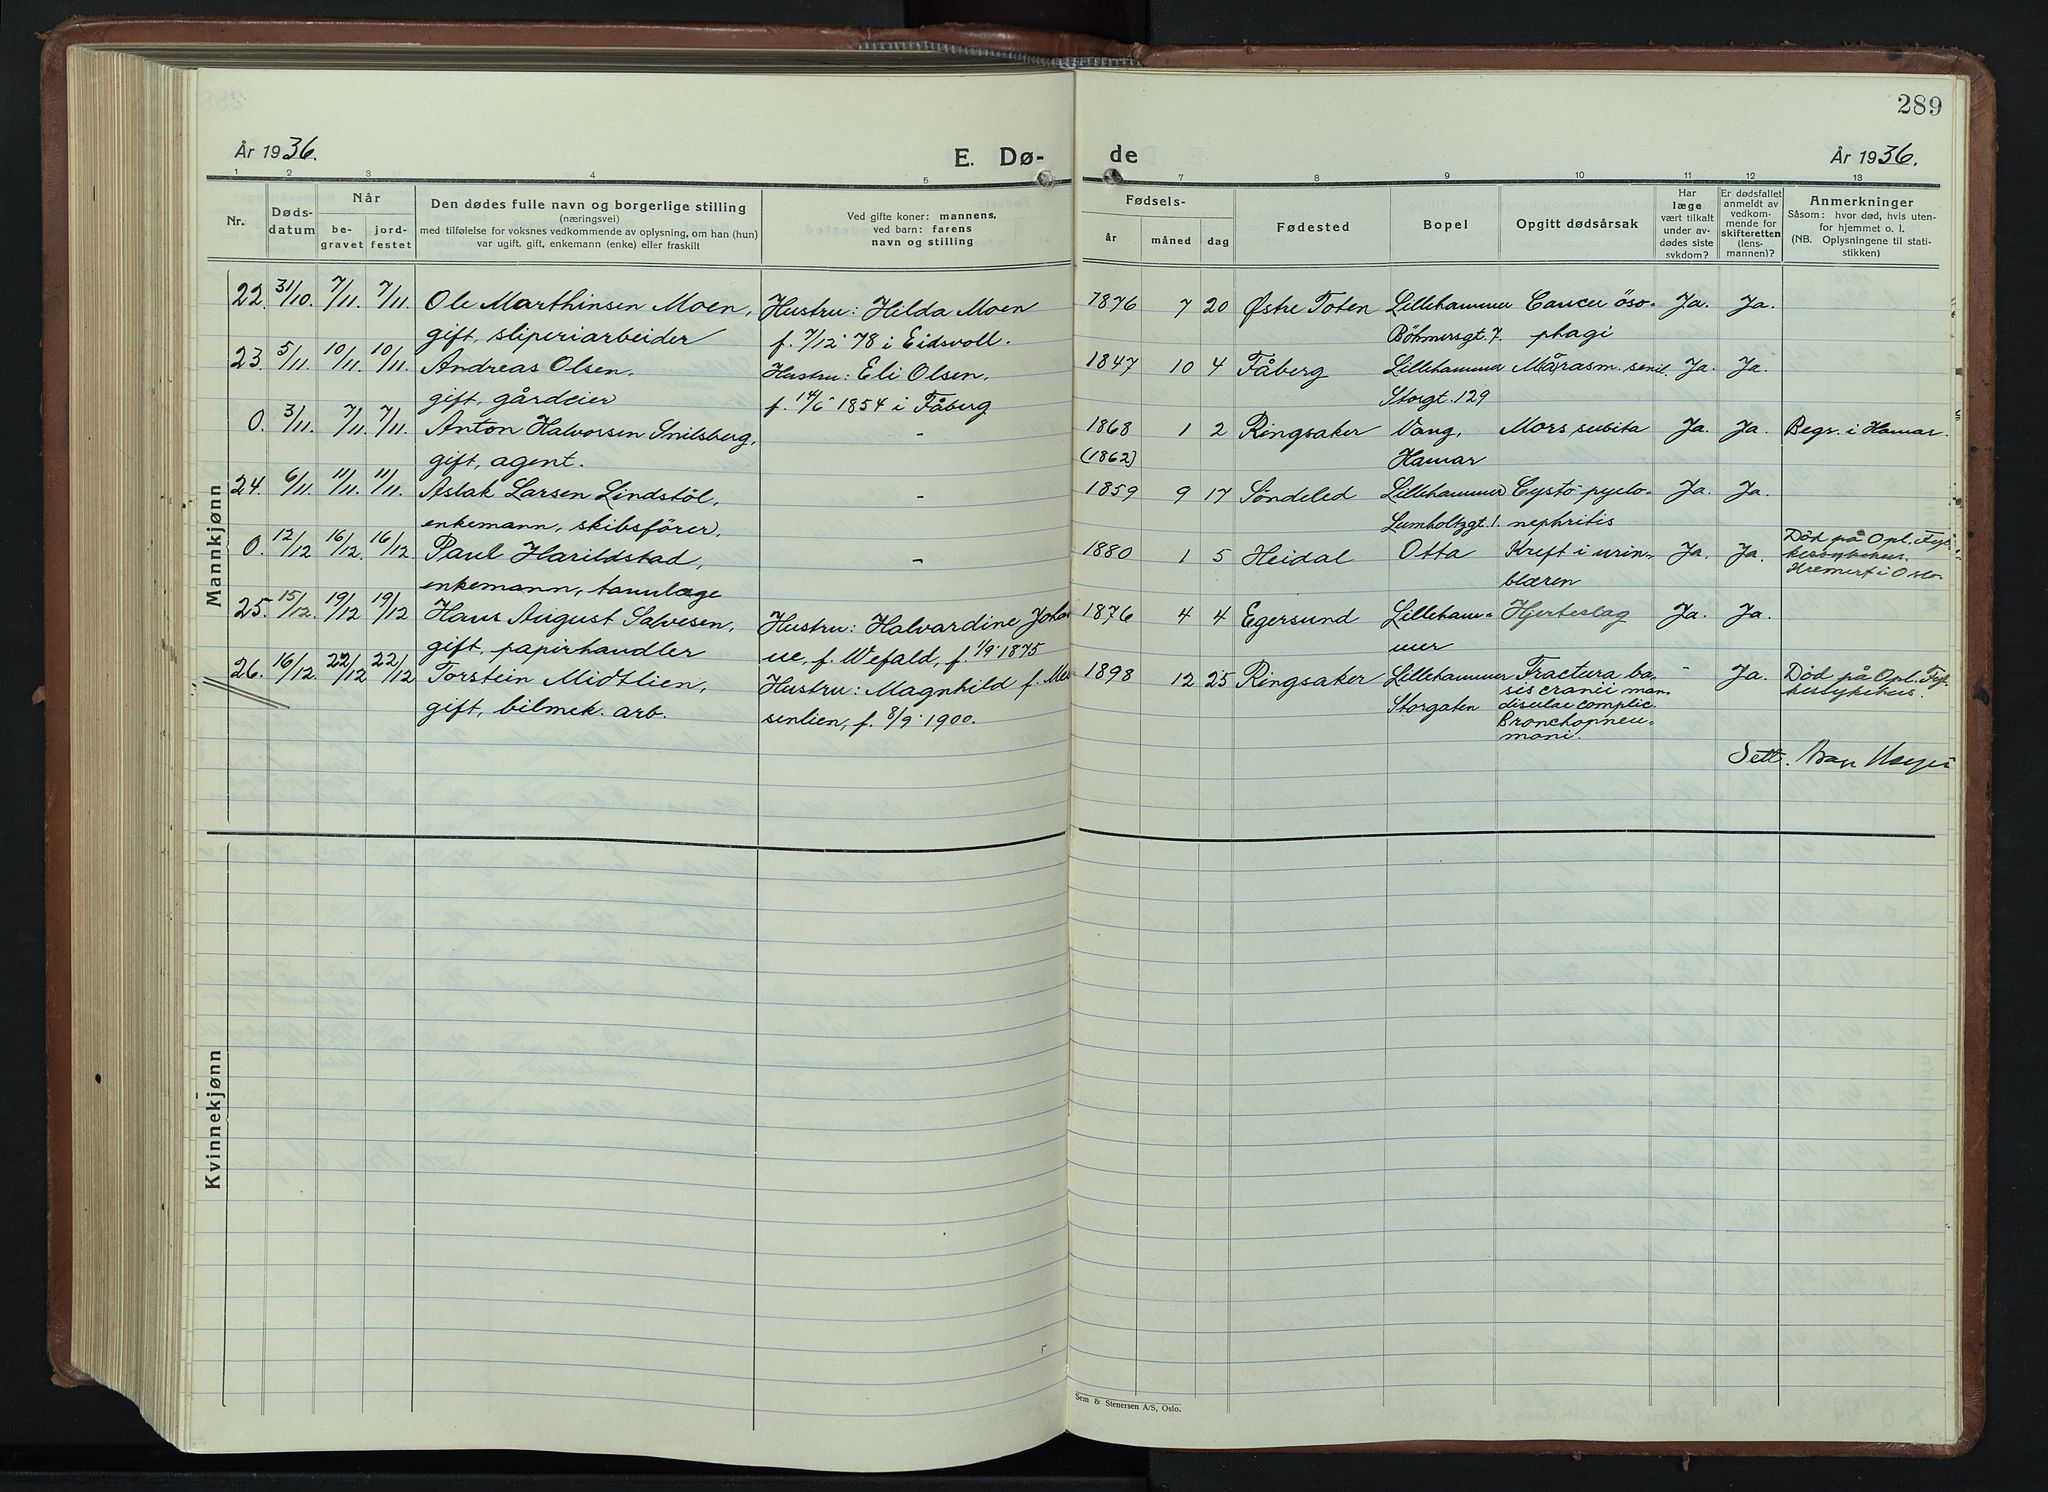 289
År 1936.
E. Dø-
de
År 1936.
1 2 3 4 5 7 8 9 10 11 12 13
Nr.
Døds-
datum
Når
be-
gravet
jord-
festet
Den dødes fulle navn og borgerlige stilling
(næringsvei)
med tilføielse for voksnes vedkommende av oplysning, om han (hun)
var ugift, gift, enkemann (enke) eller fraskilt
Ved gifte koner: mannens,
ved barn: farens
navn og stilling
Fødsels-
år
måned
dag
Fødested
Bopel
Opgitt dødsårsak
Har
læge
vært tilkalt
under av-
dødes siste
sykdom?
Er dødsfallet
anmeldt av
vedkom-
mende for
skifteretten
(lens-
mannen)?
Anmerkninger
Såsom: hvor død, hvis uten-
for hjemmet o. l.
(NB. Oplysningene til stati-
stikken)
Mannkjønn
22. 31/10. 7/11. 7/11. Ole Marthinsen Moen, Hustru: Hilda Moen 1876 7 20 Østre Toten Lillehammer Cancer öso- Ja. Ja.
gift, sliperiarbeider f. 7/12 78 i Eidsvoll. Böhmersgt. 7. phagi
23. 5/11. 10/11. 10/11. Andreas Olsen, Hustru: Eli Olsen, 1847 10 4 Fåberg Lillehammer Marasm. senil. Ja. Ja.
gift, gårdeier f. 14/6 1854 i Fåberg Storgt. 129
0. 3/11. 7/11. 7/11. Anton Halvorsen Snilsberg, - 1868 1 2 Ringsaker Vang, Mors subita Ja. Ja. Begr. i Hamar.
gift, agent. (1862) Hamar
24. 6/11. 11/11. 11/11. Aslak Larsen Lindstöl, - 1859 9 17 Søndeled Lillehammer Cysto-pyelo- Ja. Ja.
enkemann, skibsfører. Lumholtzgt. 1. nephritis
0. 12/12 16/12. 16/12 Paul Harildstad, - 1880 1 5 Heidal Otta Kreft i urin- Ja. Ja. Död på Opl. Fyl-
enkemann, tannlæge blæren kessykehus.
Kremert i Oslo.
25. 15/12. 19/12 19/12 Hans August Salvesen, Hustru: Halvardine Johan 1876 4 4 Egersund Lilleham- Hjerteslag Ja. Ja.
gift, papirhandler ne, f. Wefald, f. 1/9 1875 mer
26. 16/12. 22/12 22/12 Torstein Midtlien, Hustru: Magnhild f. 1898 12 25 Ringsaker Lillehammer Fractura ba- - Ja. Död på Opl. Fyl-
gift, bilmek. arb. senlien, f. 8/9 1900. Storgaten sis cranii man- kessykehus.
complic.
Bronchopneu-
moni.
Sett.
Kvinnekjønn
Sem & Stenersen A/S, Oslo.